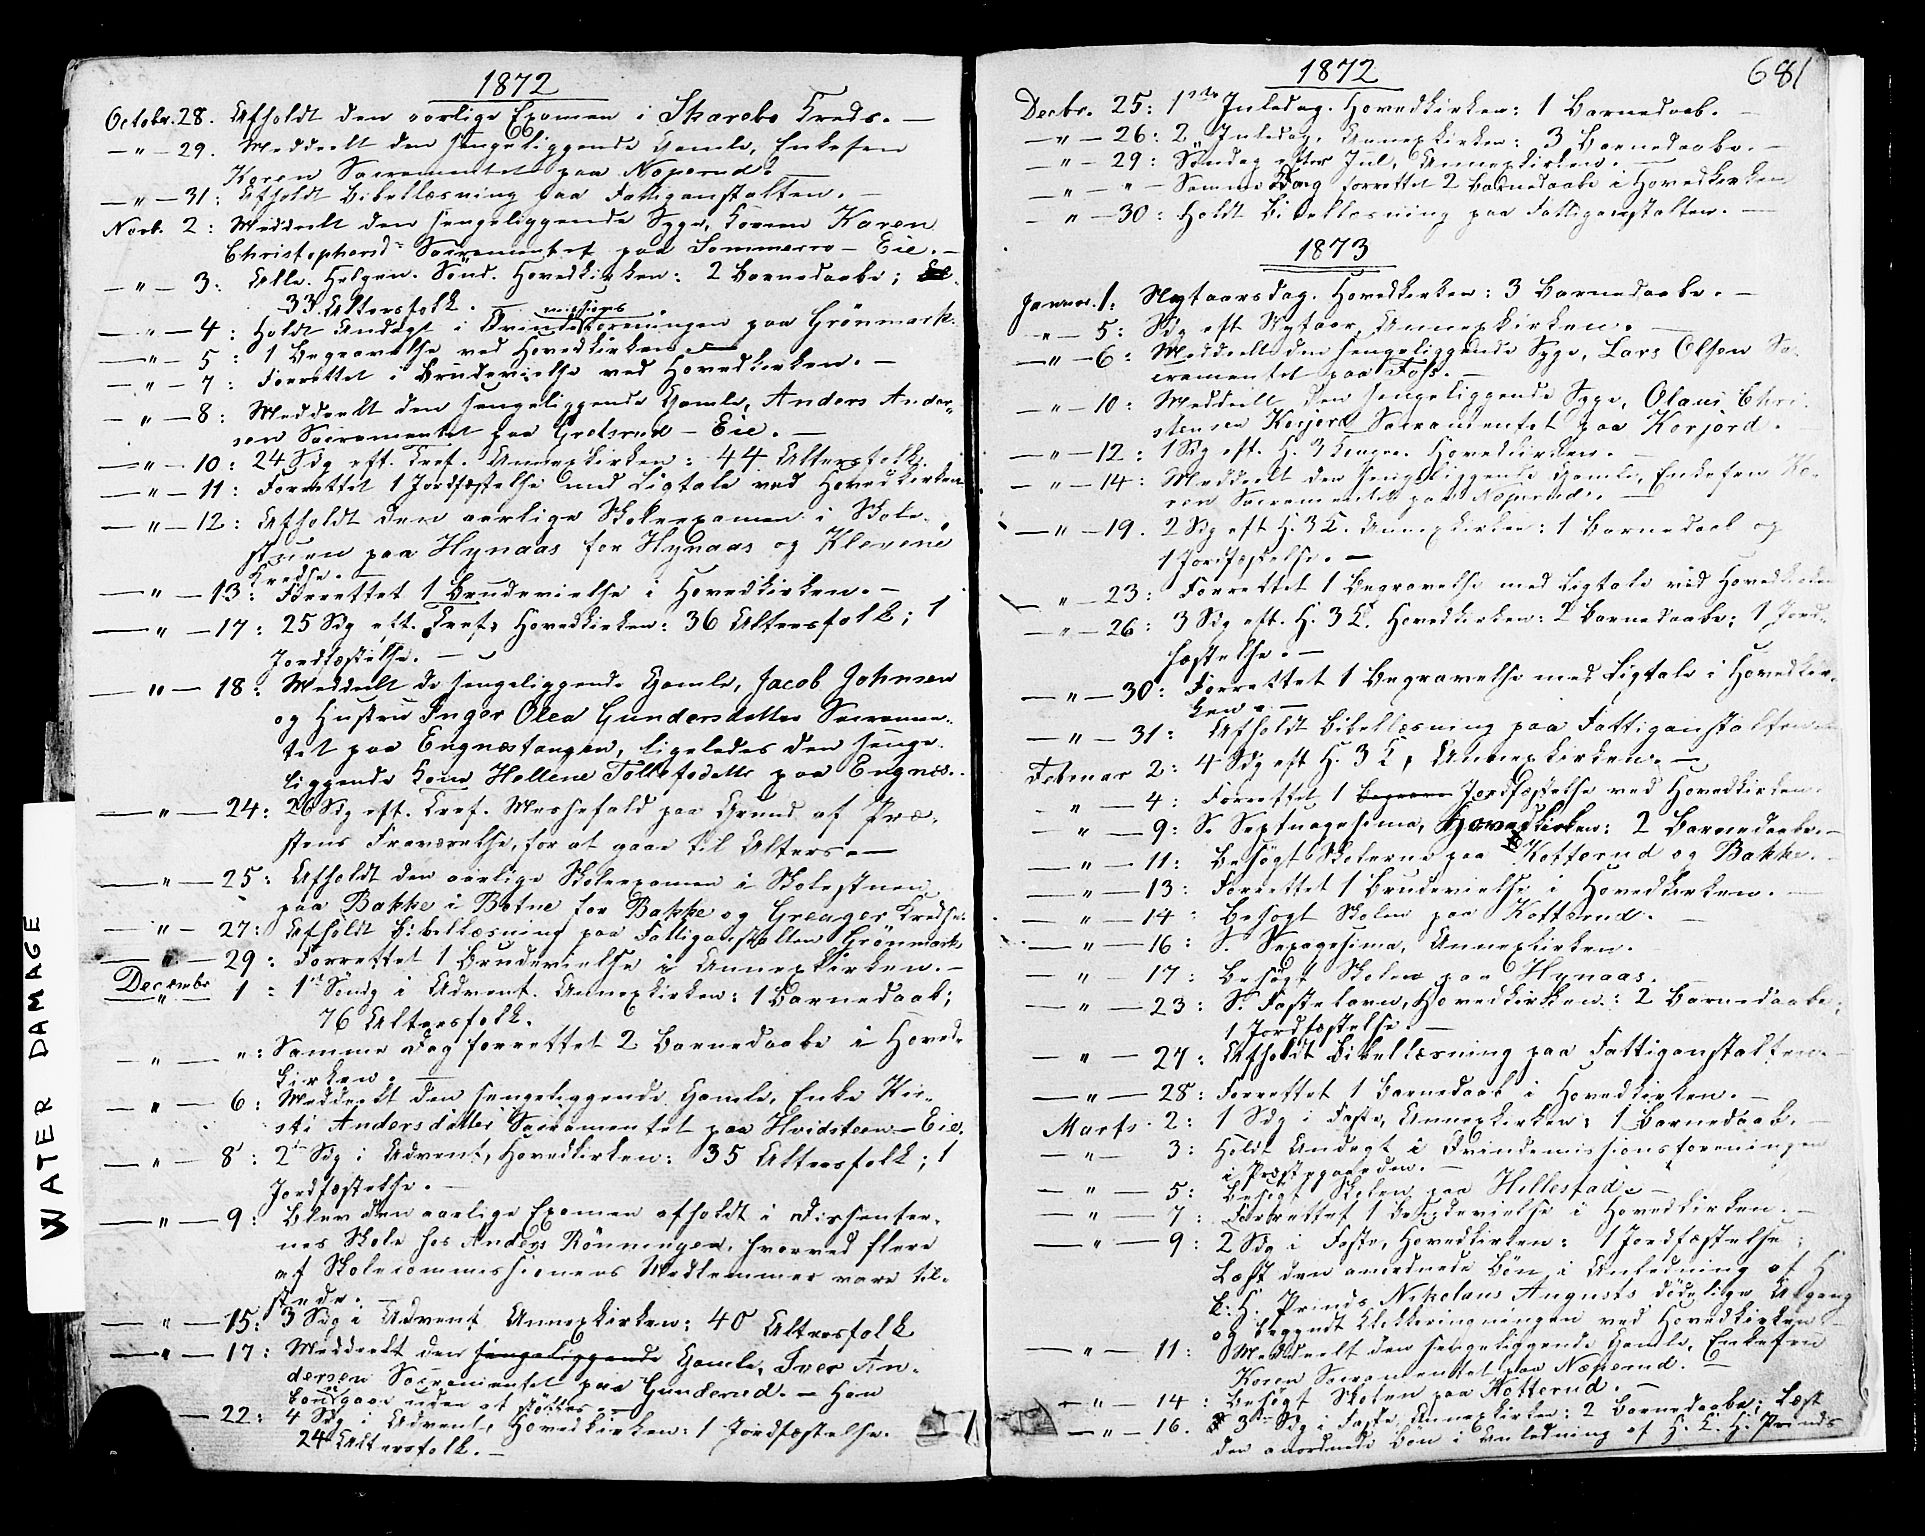 1872
Octobr. 28. Afholdt den aarlige Examen i Skarebo Kreds. —
— " — 29. Meddeelt den sengeliggende Gamle, Enkefru
Karen Sacramentet paa Næperud. —
— " — 31: Afholdt Bibellæsning paa Fattiganstalten. —
Novb. 2: Meddeelt den sengeliggende Syge, Konen Karen
Christophersd. Sacramentet paa Sommerro - Eie. —
— " — 3: Alle Helgen. Sönd. Hovedkirken: 2 Barnedaabe;
33 Altersfolk. —
— " — 4: Holdt Andagt i Qvindemissionsforeningen paa Grönmark.
— " — 5: 1 Begravelse ved Hovedkirken. —
— " — 7: Forrettet 1 Brudevielse ved Hovedkirken. —
— " — 8: Meddeelt den sengeliggende Gamle, Anders Ander-
sen Sacramentet paa Grelsrud - Eie. —
— " — 10: 24 Sdg eft. Tref. Annexkirken: 44 Altersfolk.
— " — 11: Forrettet 1 Jordfæstelse med Ligtale ved Hovedkirken
— " — 12: Afholdt den aarlige Skoleexamen i Skole-
stuen paa Hynaas for Hynaas og Klevene
Kredse. —
— " — 13: Forrettet 1 Brudevielse i Hovedkirken. —
— " — 17: 25 Sdg eft. Tref. Hovedkirken: 36 Altersfolk; 1
Jordfæstelse. —
— " — 18: Meddeelt de sengeliggende Gamle, Jacob Johnsen
og Hustru Inger Olea Gundersdatter Sacramen-
tet paa Engnæstangen, ligeledes den senge-
liggende Kone Hellene Tollefsdatter paa Engnæs.
— " — 24: 26 Sdg eft. Tref. Messefald paa Grund af Præ-
stens Fraværelse, for at gaae til Alters. —
— " — 25: Afholdt den aarlige Skoleexamen i Skolestuen
paa Bakke i Botne for Bakke og Greager Kredse.
— " — 27: Afholdt Bibellæsning paa Fattiganstalten Grönmark
29: Forrettet 1 Brudevielse i Annexkirken. —
Decembr. 1: 1ste Söndg i Advent. Annexkirken: 1 Barnedaab;
76 Altersfolk.
— " — ": Samme Dag forrettet 2 Barnedaabe i Hoved-
kirken. —
— " — 6: Meddeelt den sengeliggende Gamle, Enke Kir-
sti Andersdatter Sacramentet paa Hvidsteen - Eie.
— " — 8: 2 Sdg i Advent, Hovedkirken: 35 Altersfolk; 1
Jordfæstelse. —
— " — 9: Blev den aarlige Examen afholdt i Dissenter-
nes Skole hos Anders Rönningen, hvorved flere
af Skolecommissionens Medlemmer vare til-
stede. —
— " — 15: 3 Sdg i Advent Annexkirken: 40 Altersfolk
— " — 17: Meddeelt den sengeliggende Gamle, Iver An-
dersen Sacramentet paa Gunderud. — Han
kan ei gaae uden at stöttes. —
— 22: 4 Sdg i Advent, Hovedkirken: 1 Jordfæstelse.
24 Altersfolk. —
1872
681
Decbr. 25: 1ste Juledag. Hovedkirken: 1 Barnedaab. —
— " — 26: 2 Juledag, Annexkirken: 3 Barnedaabe. —
— " — 29: Söndag efter Jul, Annexkirken. —
— " — " — Samme Dag forrettet 2 Barnedaabe i Hovedkirken
— " — 30: Holdt Bibellæsning paa Fattiganstalten. —
1873
Januar. 1: Nytaarsdag. Hovedkirken: 3 Barnedaabe. —
" — 5: Sdg eft Nytaar, Annexkirken. —
— " — 6: Meddeelt den sengeliggende Syge, Lars Olsen Sa-
cramentet paa Foss. —
— " — 10: Meddeelt den sengeliggende Syge, Olaus Chri-
stensen Korjord Sacramentet paa Korjord.
— " — 12: 1 Sdg eft. H. 3 Konger. Hovedkirken. —
— " — 14: Meddeelt den sengeliggende Gamle, Enkefru Ka-
ren Sacramentet paa Næperud. —
— " — 19. 2 Sdg eft H. 3 K. Annexkirken: 1 Barnedaab og
1 Jordfæstelse. —
— " — 23: Forrettet 1 Begravelse med Ligtale ved Hovedkirken
— " — 26: 3 Sdg eft. H. 3 K. Hovedkirken: 2 Barnedaabe; 1 Jord-
fæstelse. —
— " — 30: Forrettet 1 Begravelse med Ligtale i Hovedkir-
ken. —
— " — 31: Afholdt Bibellæsning paa Fattiganstalten
Februar 2: 4 Sdg eft H. 3 K, Annexkirken. —
" — 4: Forrettet 1 Begrave Jordfæstelse ved Hovedkirken.
" — 9: S. Septuagesima, Hovedkirken: 2 Barnedaabe. —
— " — 11: Besögt Skolerne paa Kotterud og Bakke. —
— " — 13: Forrettet 1 Brudevielse i Hovedkirken. —
— " — 14: Besögt Skolen paa Kotterud. —
— " — 16: S. Sexagesima, Annexkirken.
— " — 17: Besögt Skolen paa Hynaas. —
— " — 23: S. Fastelavn, Hovedkirken: 2 Barnedaabe;
1 Jordfæstelse. —
— " — 27: Afholdt Bibellæsning paa Fattiganstalten. —
— " — 28: Forrettet 1 Barnedaab i Hovedkirken. —
Marts. 2: 1 Sdg i Faste, Annexkirken: 1 Barnedaab. —
— " — 3: Holdt Andagt i Qvindemissionsforeningen
i Præstegaarden. —
— " — 5: Besögt Skolen paa Hillestad. —
— " — 7: Forrettet 1 Brudevielse i Hovedkirken. —
— " — 9: 2 Sdg i Faste, Hovedkirken: 1 Jordfæstelse;
Læst den anordnede Bön i Anledning af H.
K. H. Prinds Nikolaus Augusts dödelige Afgang
og begyndt Klokkeringningen ved Hovedkirken. —
— " — 11: Meddeelt den sengeliggende Gamle, Enkefru
Karen Sacramentet paa Næperud. —
— " — 14: Besögt Skolen paa Kotterud. —
— " — 16. 3die Sdg i Faste, Annexkirken: 2 Barnedaabe; Læst
den anordnede Bön i Anledning af H. K. H. Prinds
WATER DAMAGE